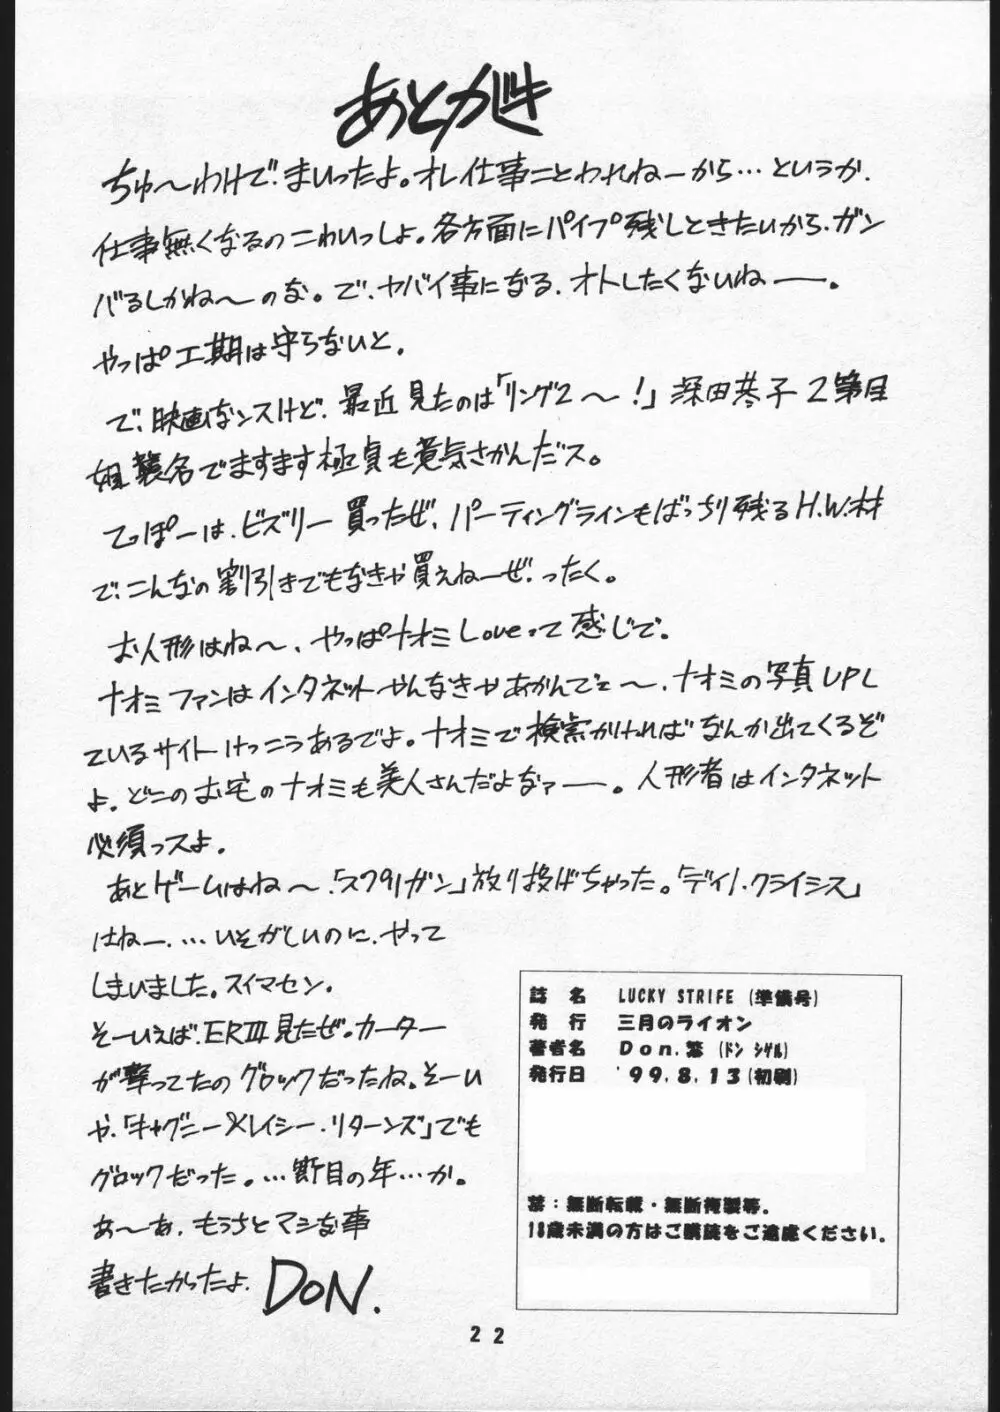 あとがき
ちゅ〜わけで、まいったよ。オレ仕事ことわれねーから…というか、
仕事無くなるのこわいっしょ。各方面にパイプ残しときたいから、ガン
バるしかね〜のな。で、ヤバイ事になる、オトしたくないねー。
やっぱ工期は守らないと。
で、映画なンスけど、最近見たのは「リング2〜!」深田恭子2代目
襲名でますます極貞も意気さかんだス。
てっぽーは、ビズリー買ったぜ、パーティングラインもばっちり残るH.W.材
で、こんなの割引きでもなきゃ買えねーぜ、ったく。
お人形はね〜、やっぱナオミLoveって感じで。
ナオミファンはインタネットやんなきゃあかんでェ〜、ナオミの写真UPし
ているサイトけっこうあるでよ。ナオミで検索かければなんか出てくるぞ
よ。どこのお宅のナオミも美人さんだよなァー。人形者はインタネット
必須っスよ。
あとゲームはね〜、「スプリガン」放り投げちゃった。「ディノ・クライシス」
はねー、…いそがしいのに、やって
しまいました。スイマセン。
そーいえば、ERⅢ見たぜ。カーター
が撃ってたのグロックだったね。そーい
や、「キャグニー&レイシー・リターンズ」でも
グロックだった。…節目の年…か。
あ〜あ、もうちとマシな事
書きたかったよ。DON.
誌 名 LUCKY STRIFE (準備号)
発 行 三月のライオン
著者名 Don.繁 (ドン シゲル)
発行日 '99.8.13(初刷)
禁:無断転載・無断複製等。
18歳未満の方はご購読をご遠慮ください。
22